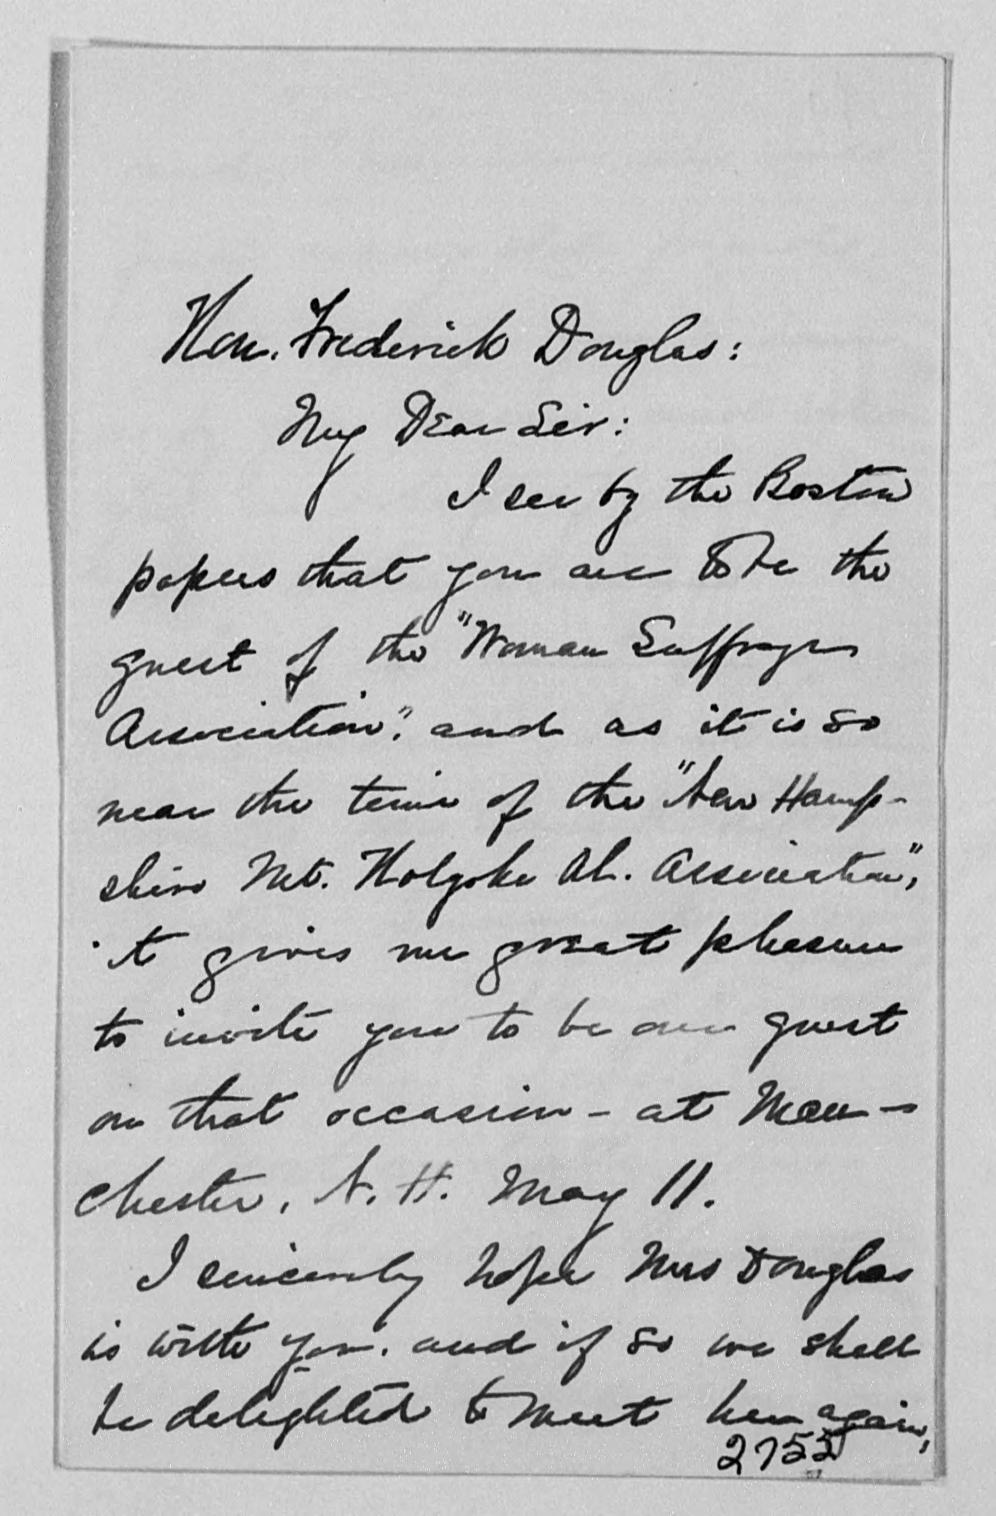 Hon. Frederick Douglas:
My Dear Sir:
I see by the Boston
papers that you are to be the
guest of the "Woman Suffrage
Association", and as it is so
near the time of the "New Hamp-
shire Mt. Holyoke Al. Association",
it gives me great pleasure
to invite you to be our guest
on that occasion - at Man-
chester, N. H. May 11.
I sincerely hope Mrs Douglas
is with you, and if so we shall
be delighted to meet her again,
2755